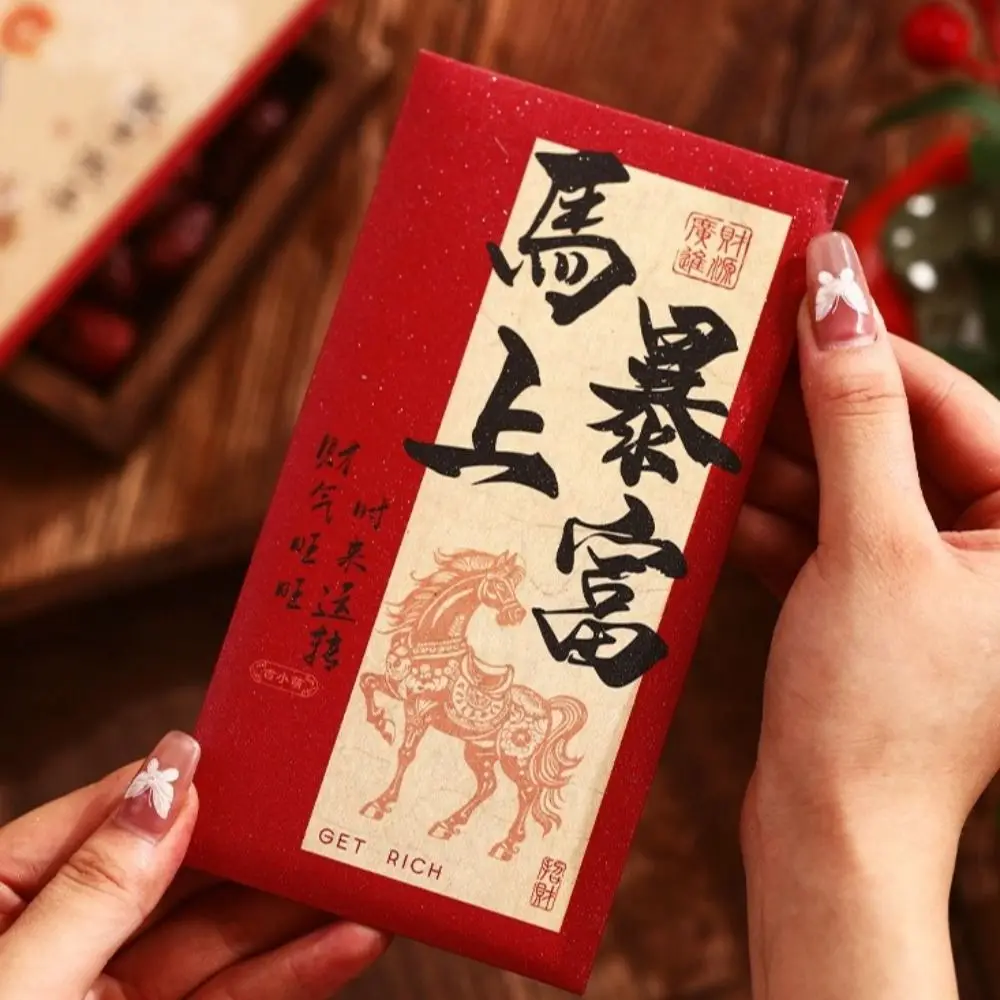 馬上
暴富
財源
廣進
财气旺旺
时来运转
GET RICH
招財